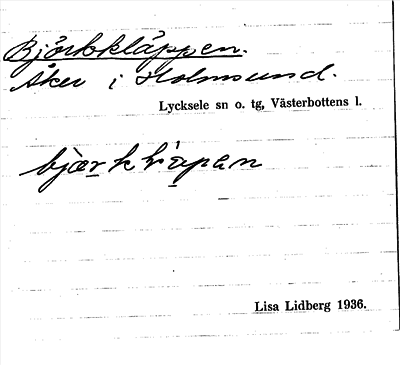 Björkkläppen.
Åker i Holmsund.
Lycksele sn o. tg, Västerbottens l.
Lisa Lidberg 1936.